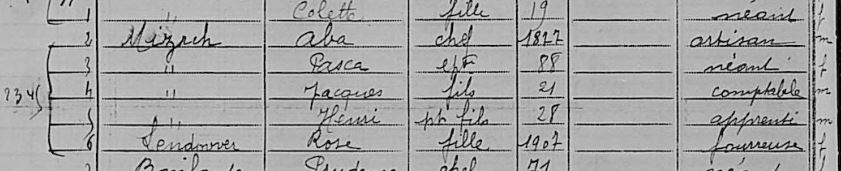 1 " Colette fille 19 néant f
2 Mizrch Aba chef 1877 artisan m
3 " Pasca epse 88 néant f
2345 4 " Jacques fils 21 comptable m
5 " Henri pt fils 28 apprenti m
6 Lendower Rose fille 1907 fourreuse f
chef 71